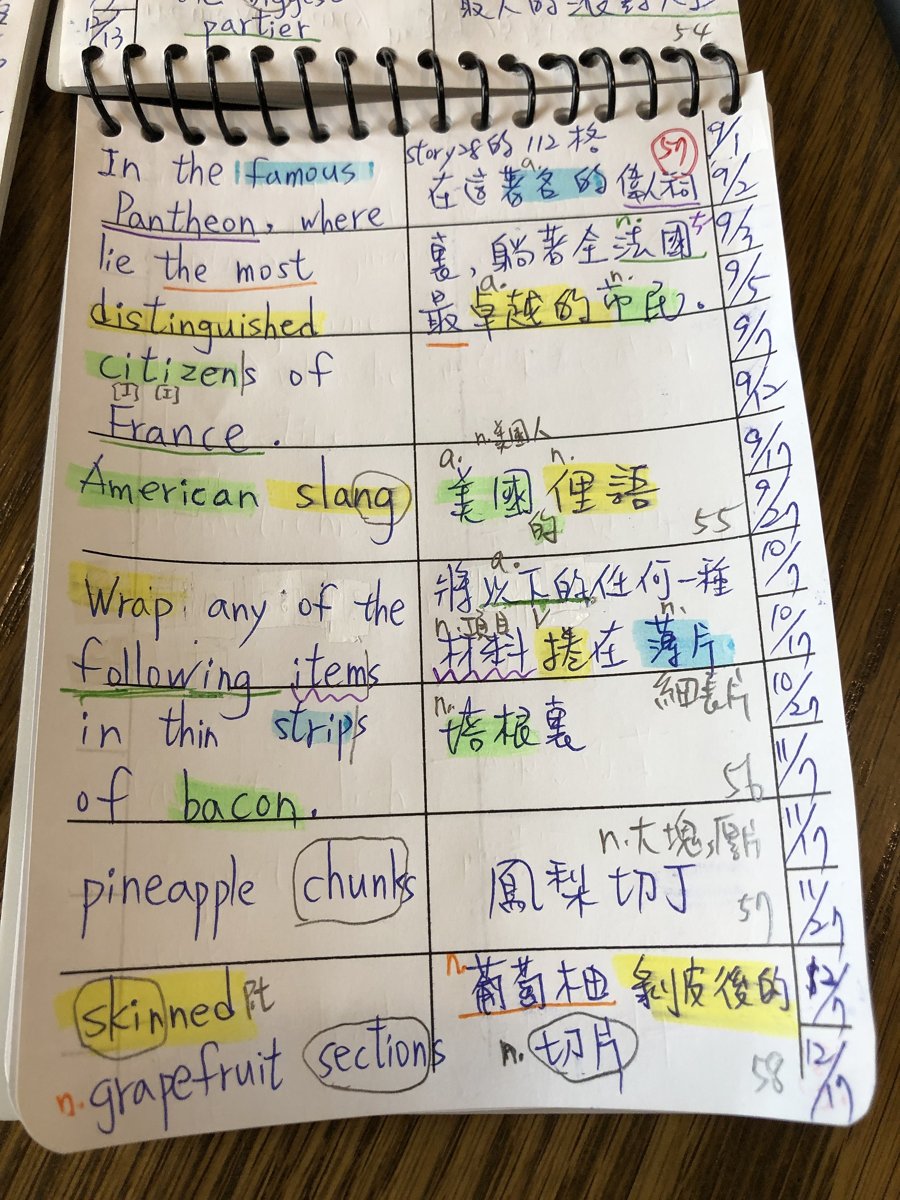 12/13
partier
54
In the famous
Pantheon, where
lie the most
distinguished
citizens of
[I] [I]
France.
story28的 112格
57
a.
在這著名的偉人祠
n.
裏,躺著全法國
a. n.
最卓越的市民.
American slang
n.美國人
a. n.
美國俚語
的
55
Wrap any of the
following items
in thin strips
of bacon.
a.
將以下的任何一種
n.項目 v n.
材料捲在薄片
細長片
n.
培根裏
56
pineapple chunks
n.大塊,厚片
鳳梨切丁
57
skinned Pt
n. grapefruit sections
n. 葡萄柚 剝皮後的
n. 切片
58
9/1
9/2
9/3
9/5
9/7
9/12
9/17
9/27
10/7
10/17
10/27
11/7
11/17
11/27
12/7
12/17